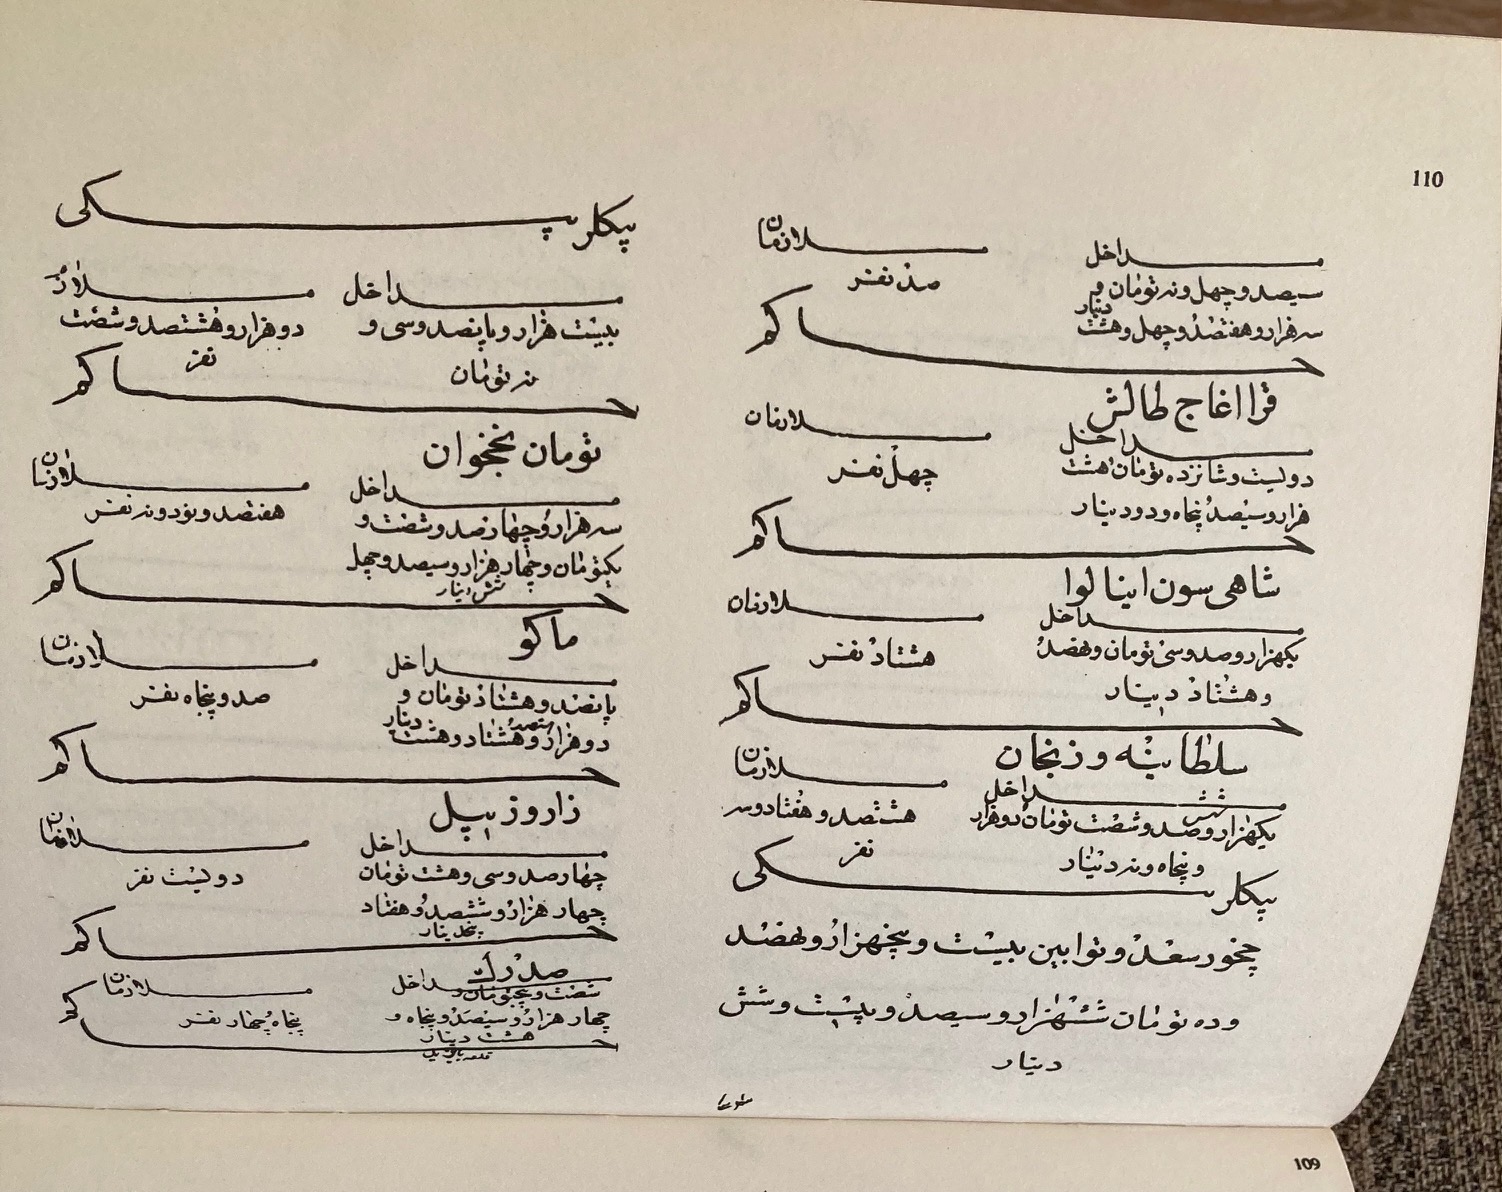 110
مداخل
ملازمان
سیصد و چهل و نه تومان و
صد نفر
سه هزار و هفتصد و چهل و هشت
دینار
حاکم
قرا اغاج طالش
مداخل
ملازمان
دولیست و شانزده تومان هشت
چهل نفر
هزار و سیصد پنجاه و دو دینار
حاکم
شاهی سون اینالوا
مداخل
ملازمان
یکهزار و صد و سی تومان و نهصد
هشتاد نفر
و هشتاد دینار
حاکم
سلطانیه و زنجان
مداخل
ملازمان
یکهزار و ششصد و شصت تومان و دو هزار
هشتصد و هفتاد و سه
و پنجاه و نه دینار
نفر
بیکلر بیکی
چخور سعد و توابین بیست و پنجهزار و نهصد
و ده تومان ششهزار و سیصد و بیست و شش
دینار
بیکلر بیکی
مداخل
ملازم
بیست هزار و پانصد و سی و
دو هزار و هشتصد و شصت
نه تومان
نفر
حاکم
تومان نخجوان
مداخل
ملازمان
سه هزار و چهار صد و شصت و
هفتصد و نود و نه نفر
یکتومان و چهار هزار و سیصد و چهل
شش دینار
حاکم
ماکو
مداخل
ملازمان
پانصد و هشتاد تومان و
صد و پنجاه نفر
دو هزار و هشتاد و هشت دینار
حاکم
زاروزبیل
مداخل
ملازمان
چهار صد و سی و هشت تومان
دولیست نفر
چهار هزار و ششصد و هفتاد
پنجدینار
حاکم
صدرک
مداخل
ملازمان
شصت و پنجتومان و
پنجاه چهار نفر
چهار هزار و سیصد و پنجاه و
هشت دینار
حاکم
قلعه بایزید
109